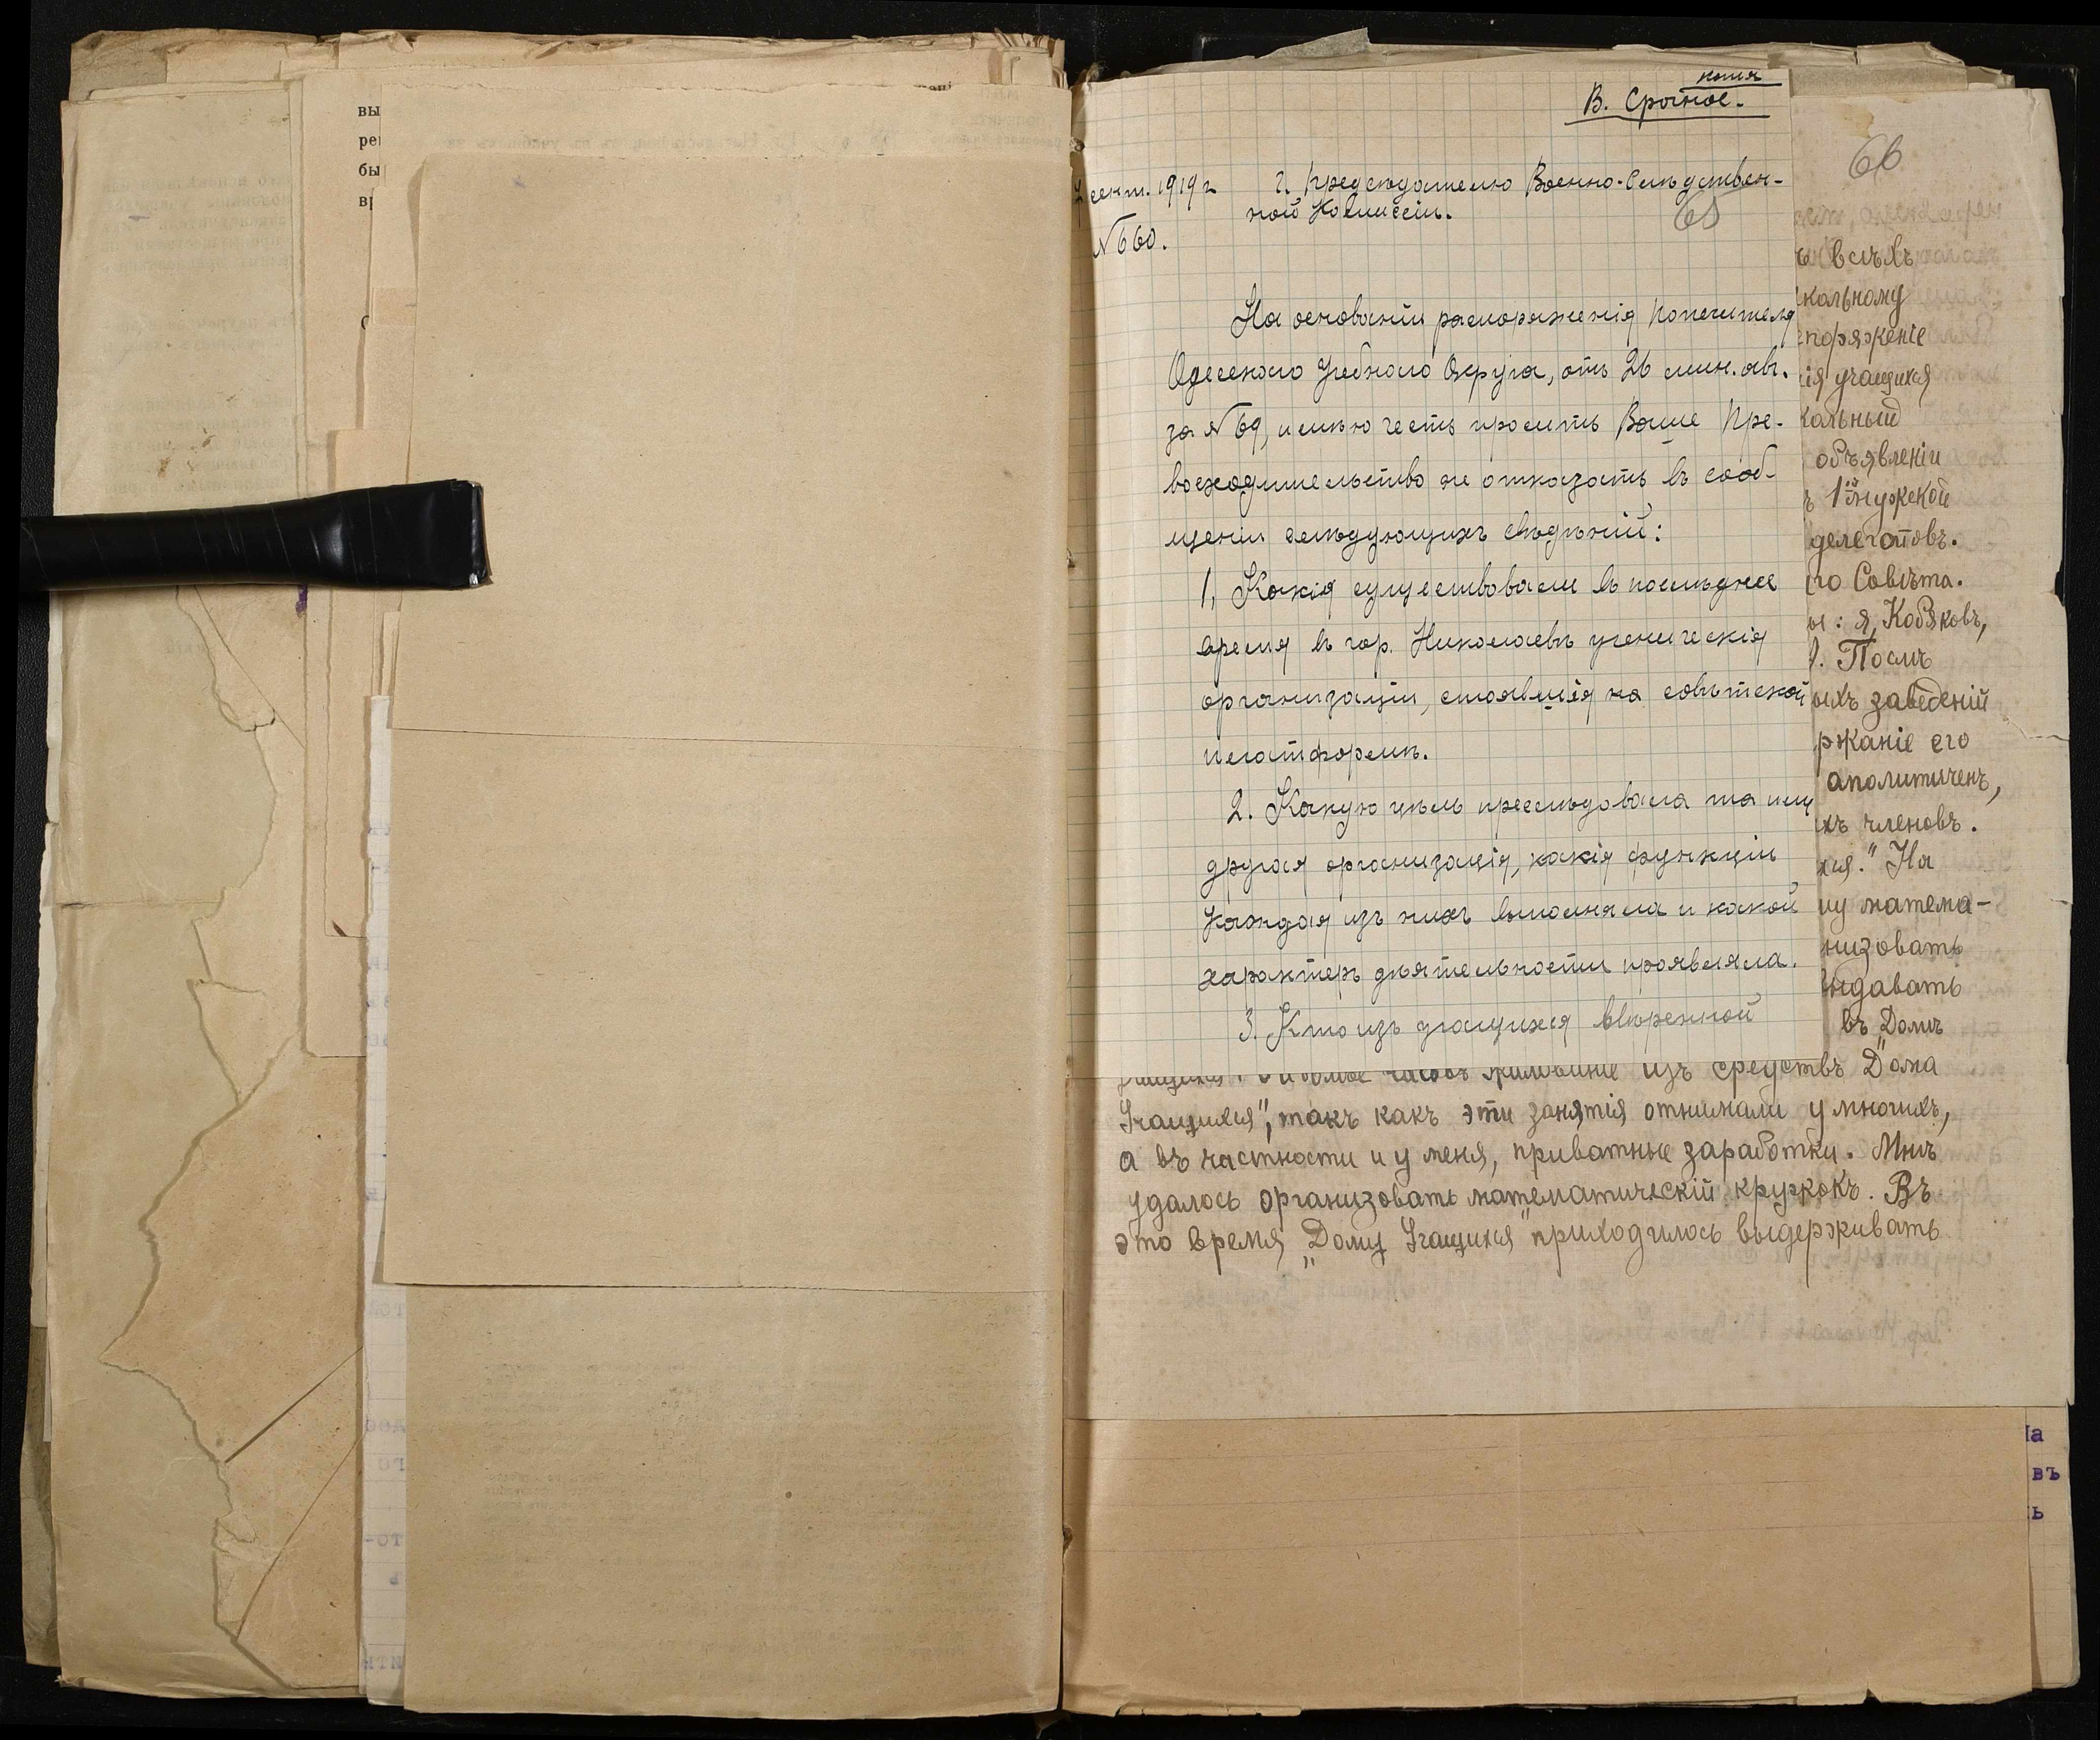 вы
ре
бы
в
копія
В. Срочное.
сент. 1919 г.
№ 660.
Г. Предсѣдателю Военно-Слѣдствен-
ной Комиссіи.
65
На основаніи распоряженія Попечителя
Одесскаго Учебнаго Округа, отъ 26 мин. авг.
за № 69, имѣю честь просить Ваше Пре-
восходительство не отказать въ сооб-
щеніи слѣдующихъ свѣдѣній:
1. Какія существовали въ послѣднее
время въ гор. Николаевѣ ученическія
организаціи, стоявшія на совѣтской
платформѣ.
2. Какую цѣль преслѣдовала та или
другая организація, какія функціи
каждая изъ нихъ выполняла и какой
характеръ дѣятельности проявляла.
3. Кто изъ учащихся ввѣренной
66
всѣхъ
кольному
споряженіе
ія учащихся
кальный
объявленіи
ъ 1ой мужской
делегатовъ.
го Совѣта.
ы: я, Кобяковъ,
Послѣ
ыхъ заведеній
ржаніе его
аполитиченъ,
ихъ членовъ.
хся." На
му матема-
низовать
выдавать
въ Домѣ
жалованіе изъ средствъ "Дома
Учащихся", такъ какъ эти занятія отнимали у многихъ,
а въ частности и у меня, приватные заработки. Мнѣ
удалось организовать математическій кружокъ. Въ
это время „Дому Учащихся" приходилось выдерживать
на
въ
ь